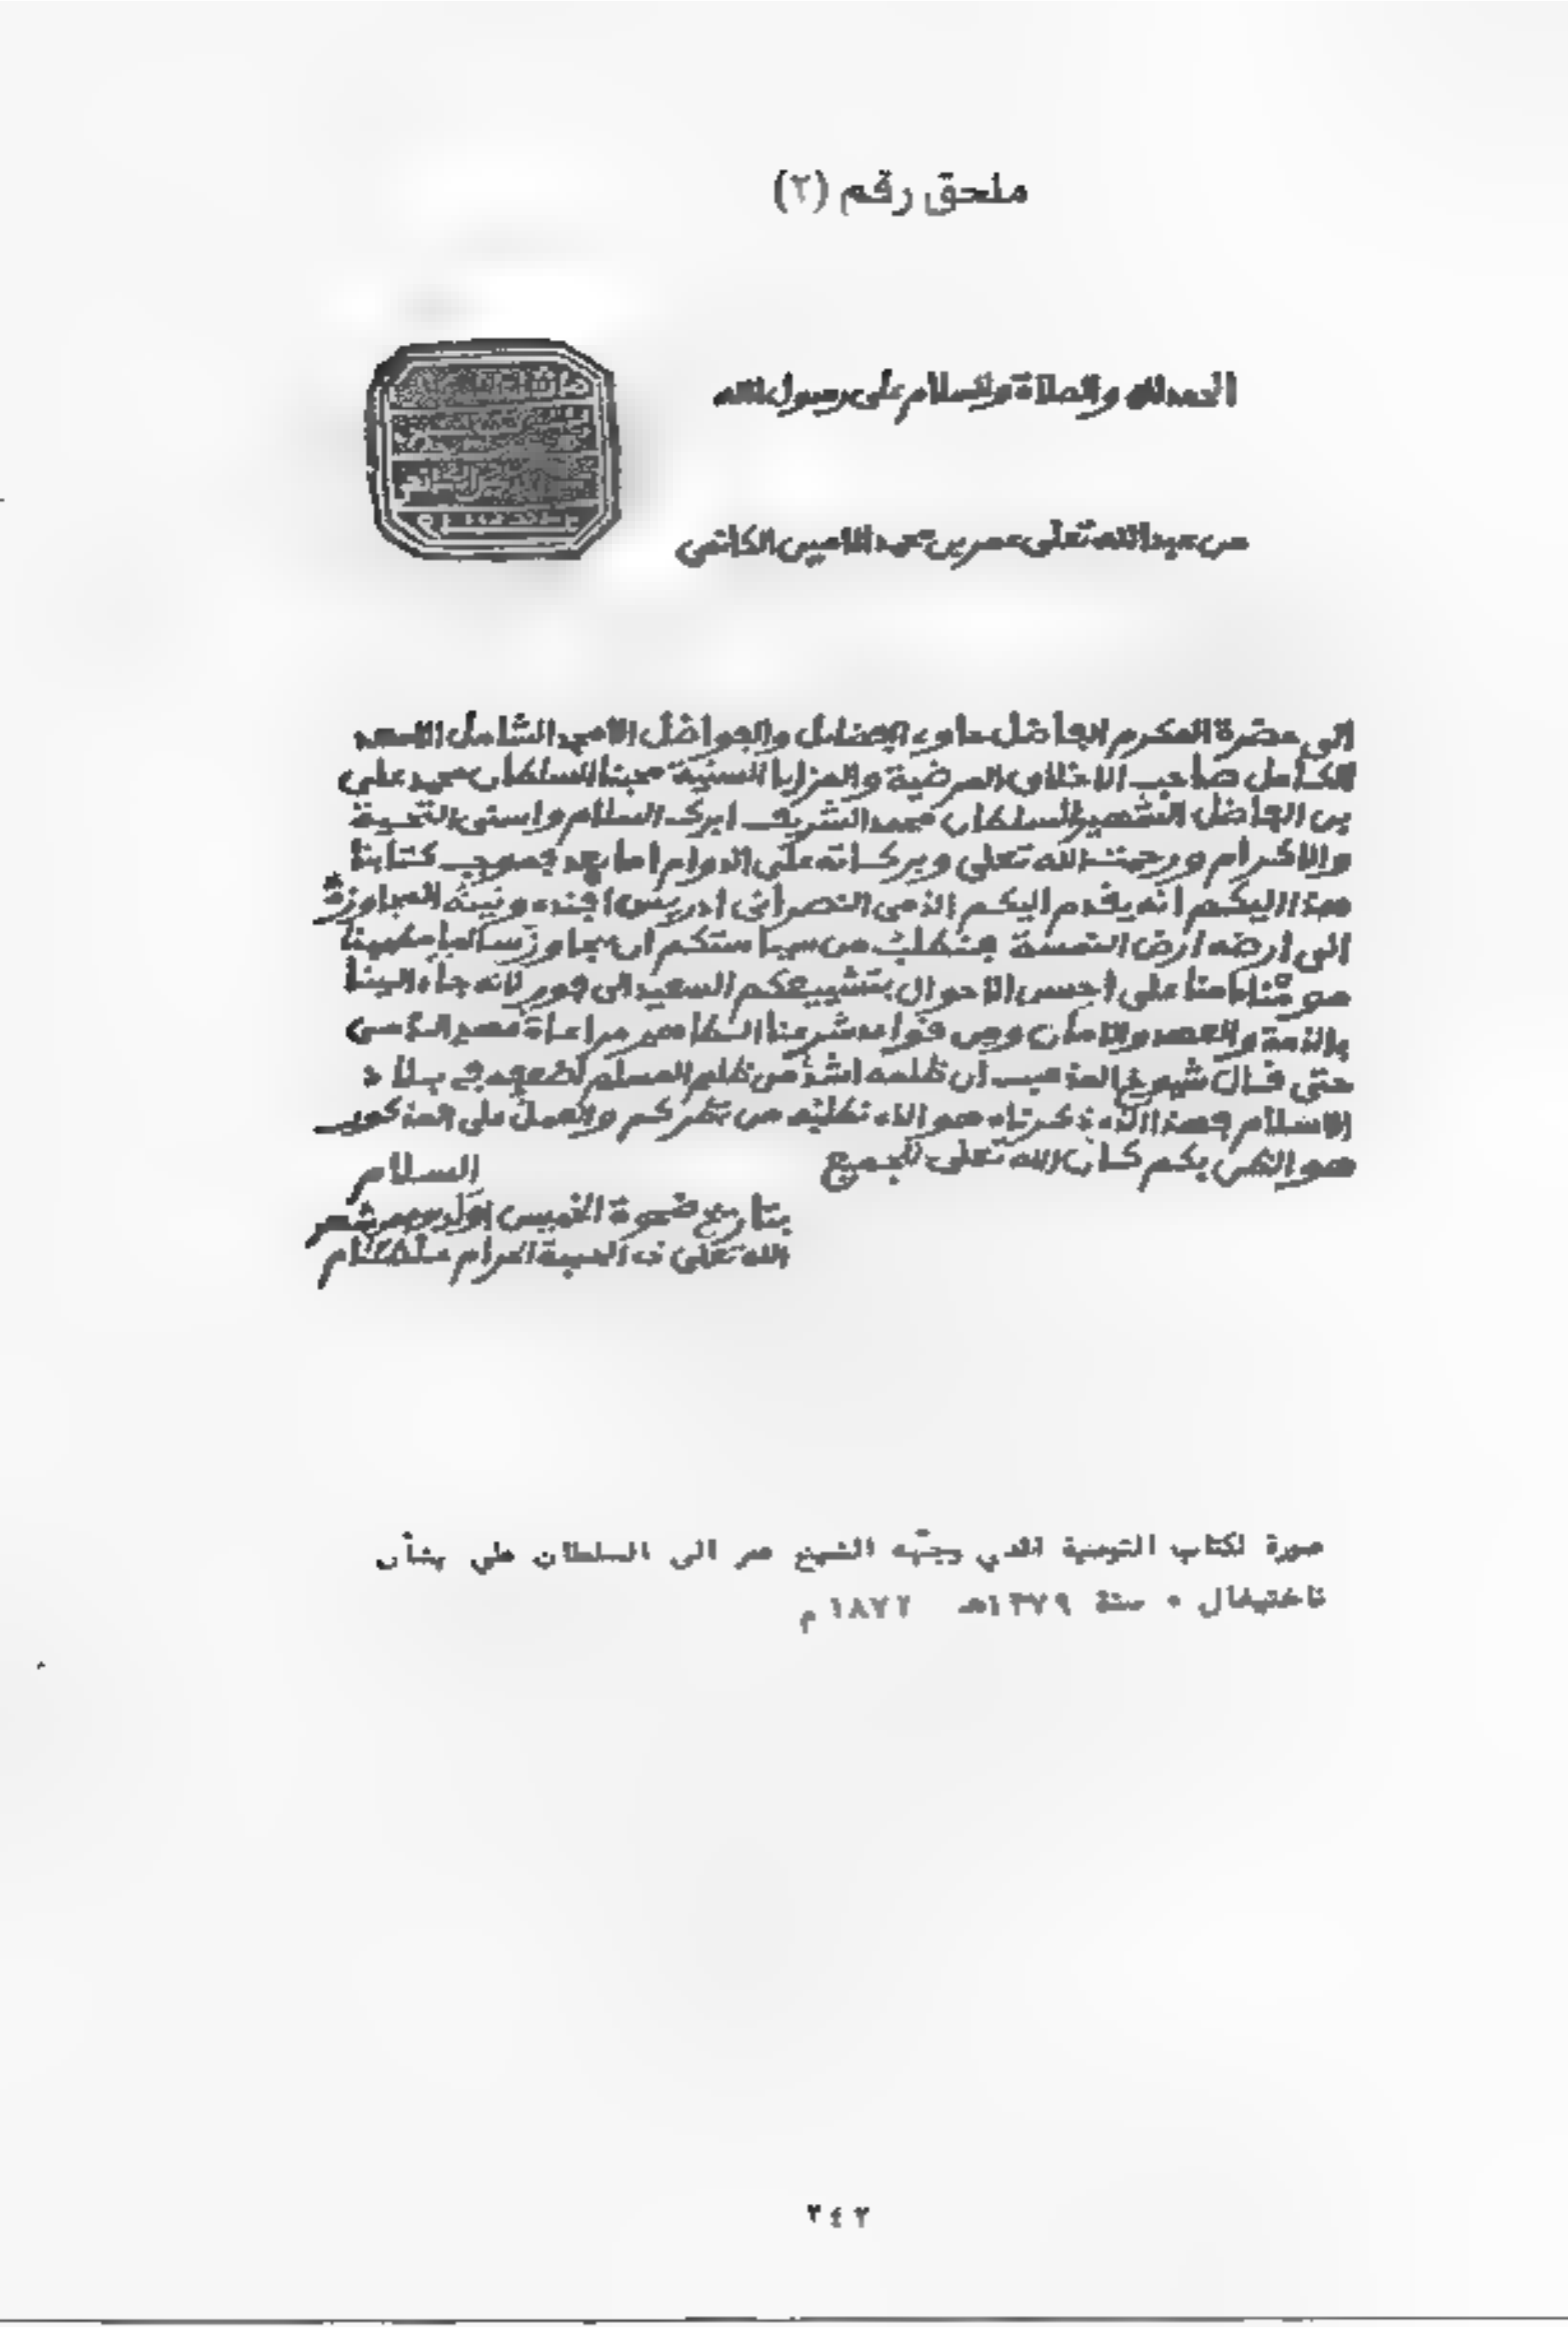 ملحق رقم (٢)
الحمد لله والصلاة والسلام على رسول الله
من عبد الله تعلى عمر بن محمد الامين الكانمي
الى حضرة المكرم الفاضل حاوي الفضايل والفواضل الامجد الشامل الاسعد
الكامل صاحب الاخلاق المرضية والمزايا السنية محبنا السلطان علي
بن الفاضل الشهير السلطان محمد الشريف ابرك السلام واسنى التحية
والاكرام ورحمت الله تعلى وبركاته على الدوام اما بعد فموجب كتابنا
هذا اليكم انه يقدم اليكم الذمي النصراني ادريس افندء ونيته المجاوزة
الى ارضه ارض النمسة فنطلب من سياستكم ان يجاوز سالما
على احسن الاحوال بتشييعكم السعيد الى فور لانه جاء الينا
بالذمة والعهد والامان ومن قواعد شرعنا الطاهر مراعاة
حتى قال شيوخ المذهب ان ظلمه اشد من ظلم المسلم لضعفه في بلاد
الاسلام فهذا الذي ذكرناه هو الذء نطلبه من نظركم والعمل على المذكور
هو الظن بكم كان الله تعلى للجميع السلام
بتاريخ ضحوة الخميس اول يوم من شهر
الله تعلى ذ الحجة الحرام
صورة لكتاب التوصية الذي وجّهه الشيخ عمر الى السلطان علي بشأن
ناختيغال ٠ سنة ١٢٧٩هـ ١٨٧٢ م
٢٤٢